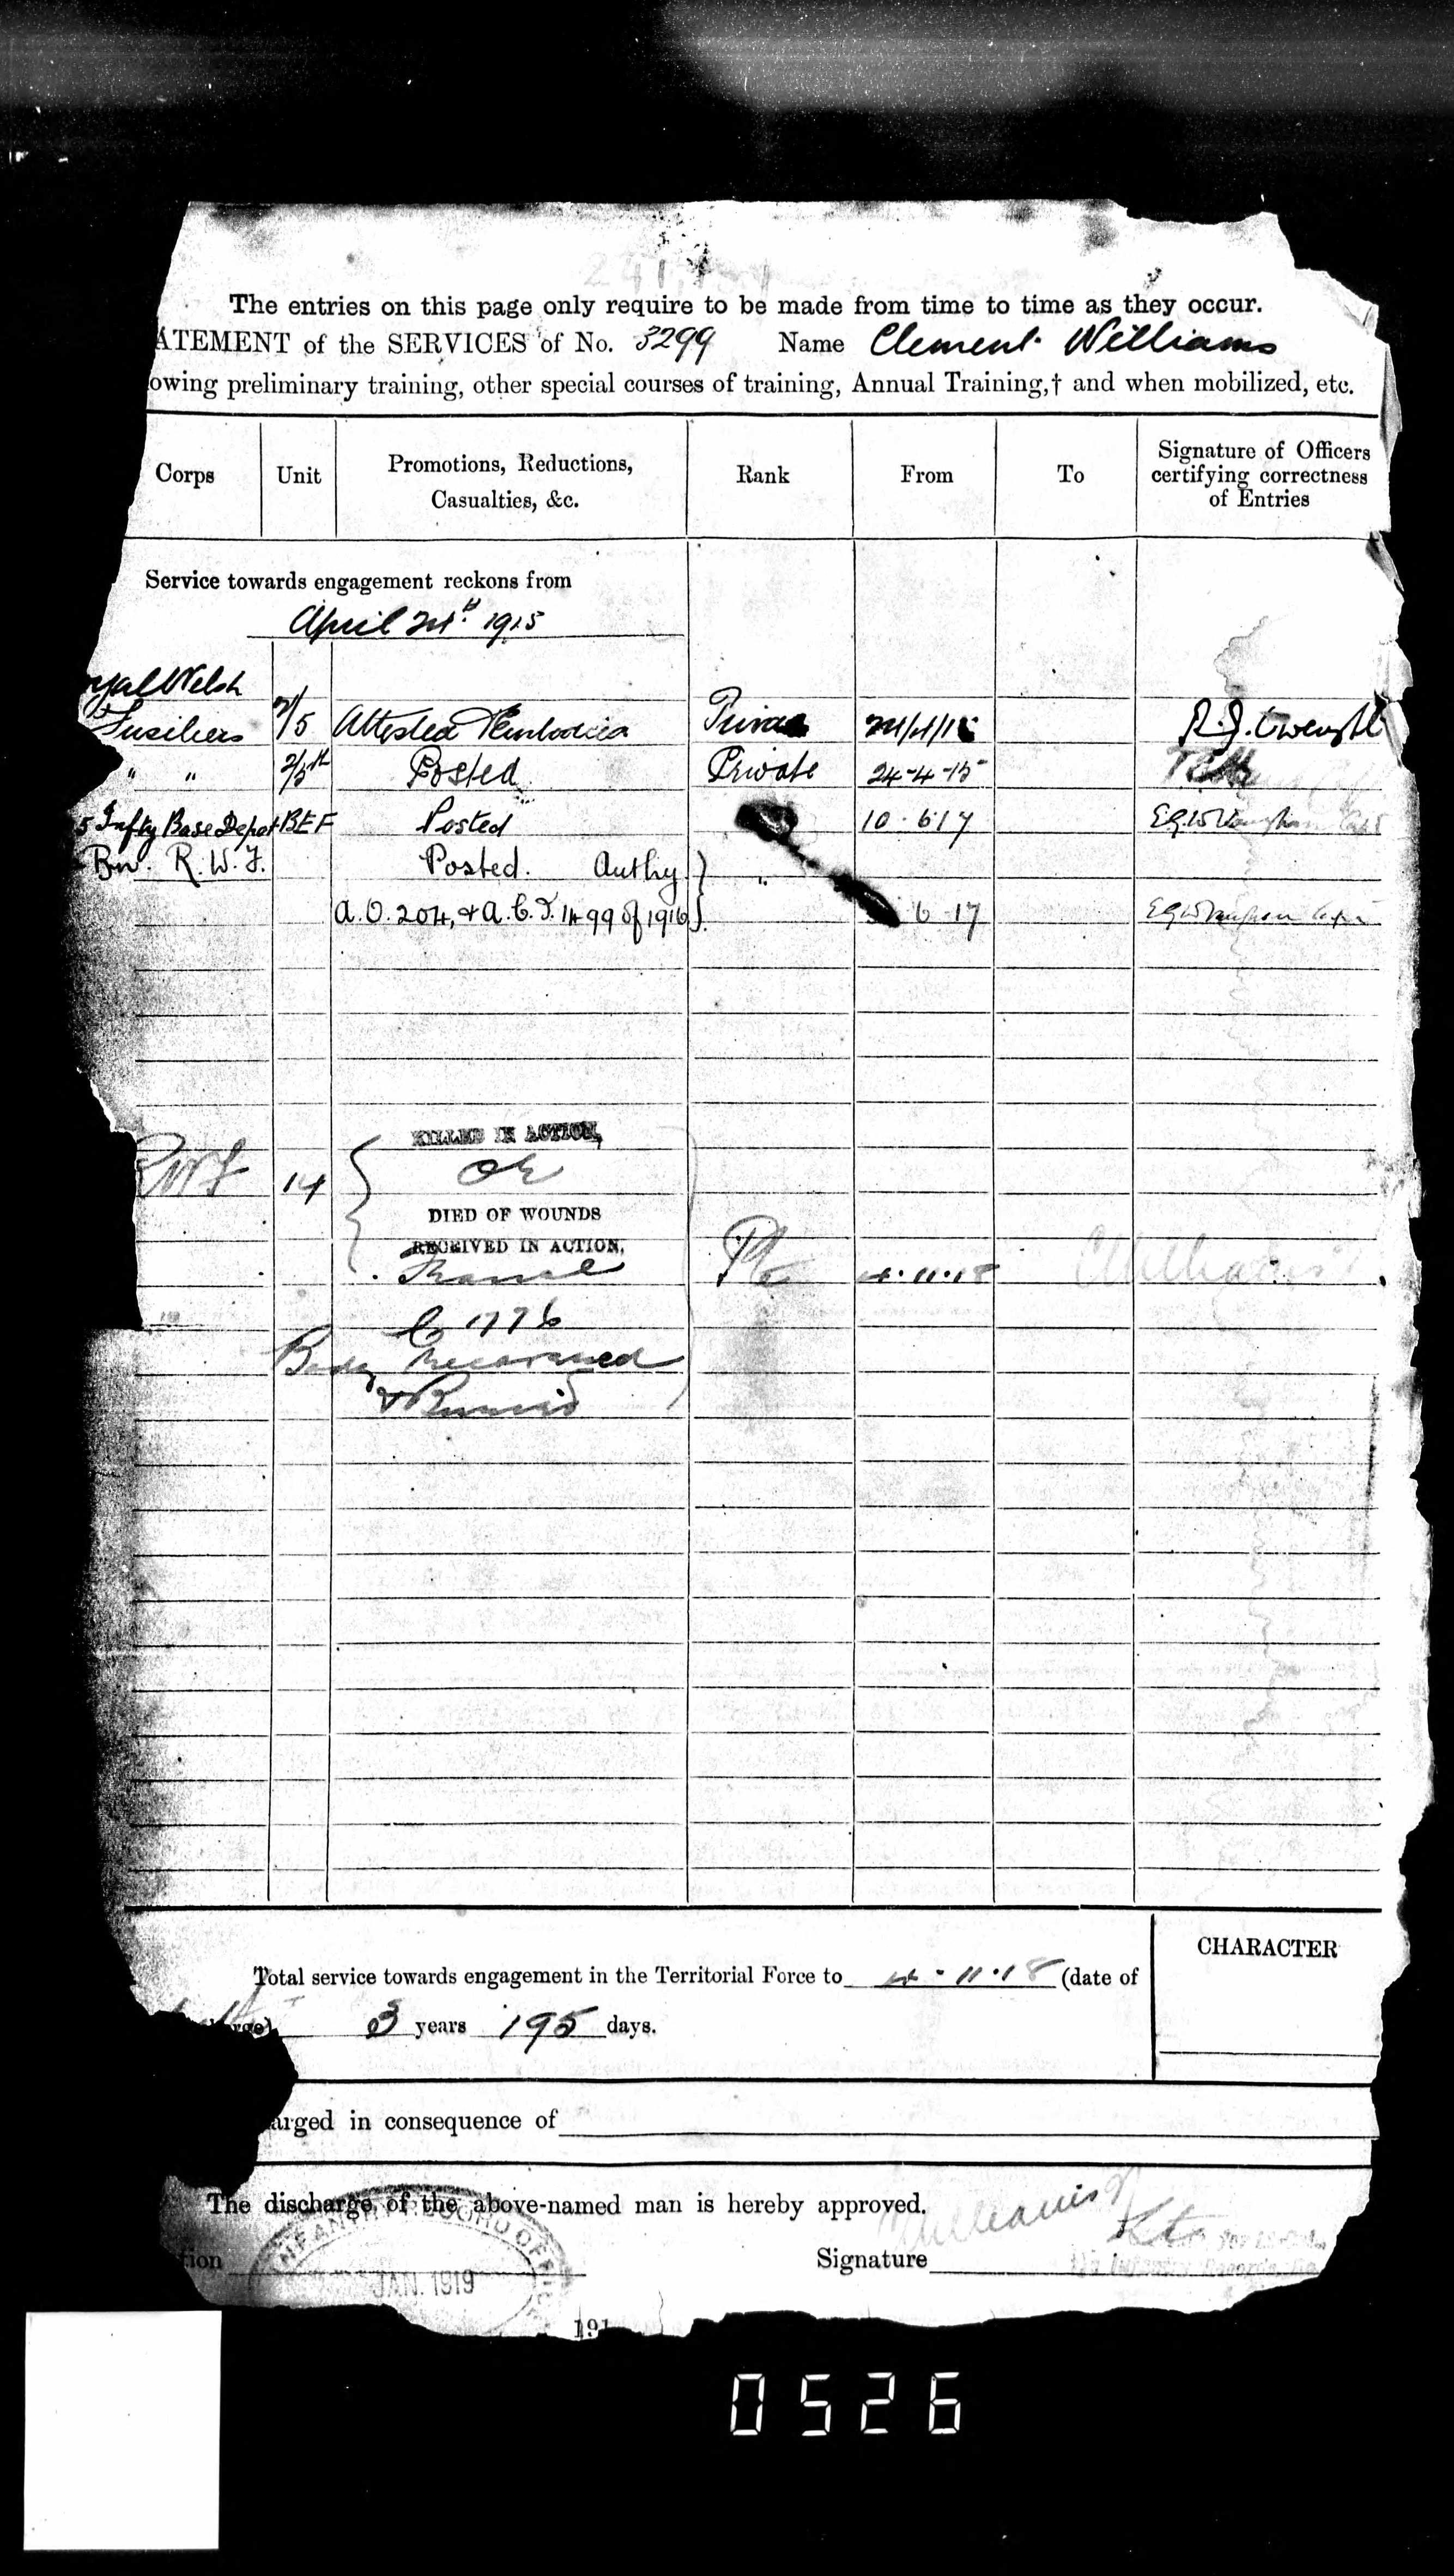 The entries on this page only require to be made from time to time as they occur.
ATEMENT of the SERVICES of No. 3299 Name Clement Williams
owing preliminary training, other special courses of training, Annual Training,† and when mobilized, etc.
Corps Unit Promotions, Reductions, Casualties, &c. Rank From To Signature of Officers certifying correctness of Entries
Service towards engagement reckons from
April 24th 1915
yal Welsh
Fusiliers /5 Attested & Embodied Private 24/4/15
" " 2/5th Posted Private 24-4-15
5 Infty Base Depot BEF Posted 10.6.17 E.G.W. Vaughan Capt
Bn. R.W.F. Posted. Authy } "
A.O. 204, & A.C.I. 1499 of 1916 6-17 E.G.W. Vaughan Capt
KILLED IN ACTION,
RWF 14 or
DIED OF WOUNDS
RECEIVED IN ACTION,
France Pte 4.11.18
C 1776
Body recovered
& Buried
Total service towards engagement in the Territorial Force to 4.11.18 (date of
CHARACTER
3 years 195 days.
arged in consequence of
The discharge of the above-named man is hereby approved.
INFANTRY RECORD OFFICE
tion Signature
JAN. 1919
191
0526